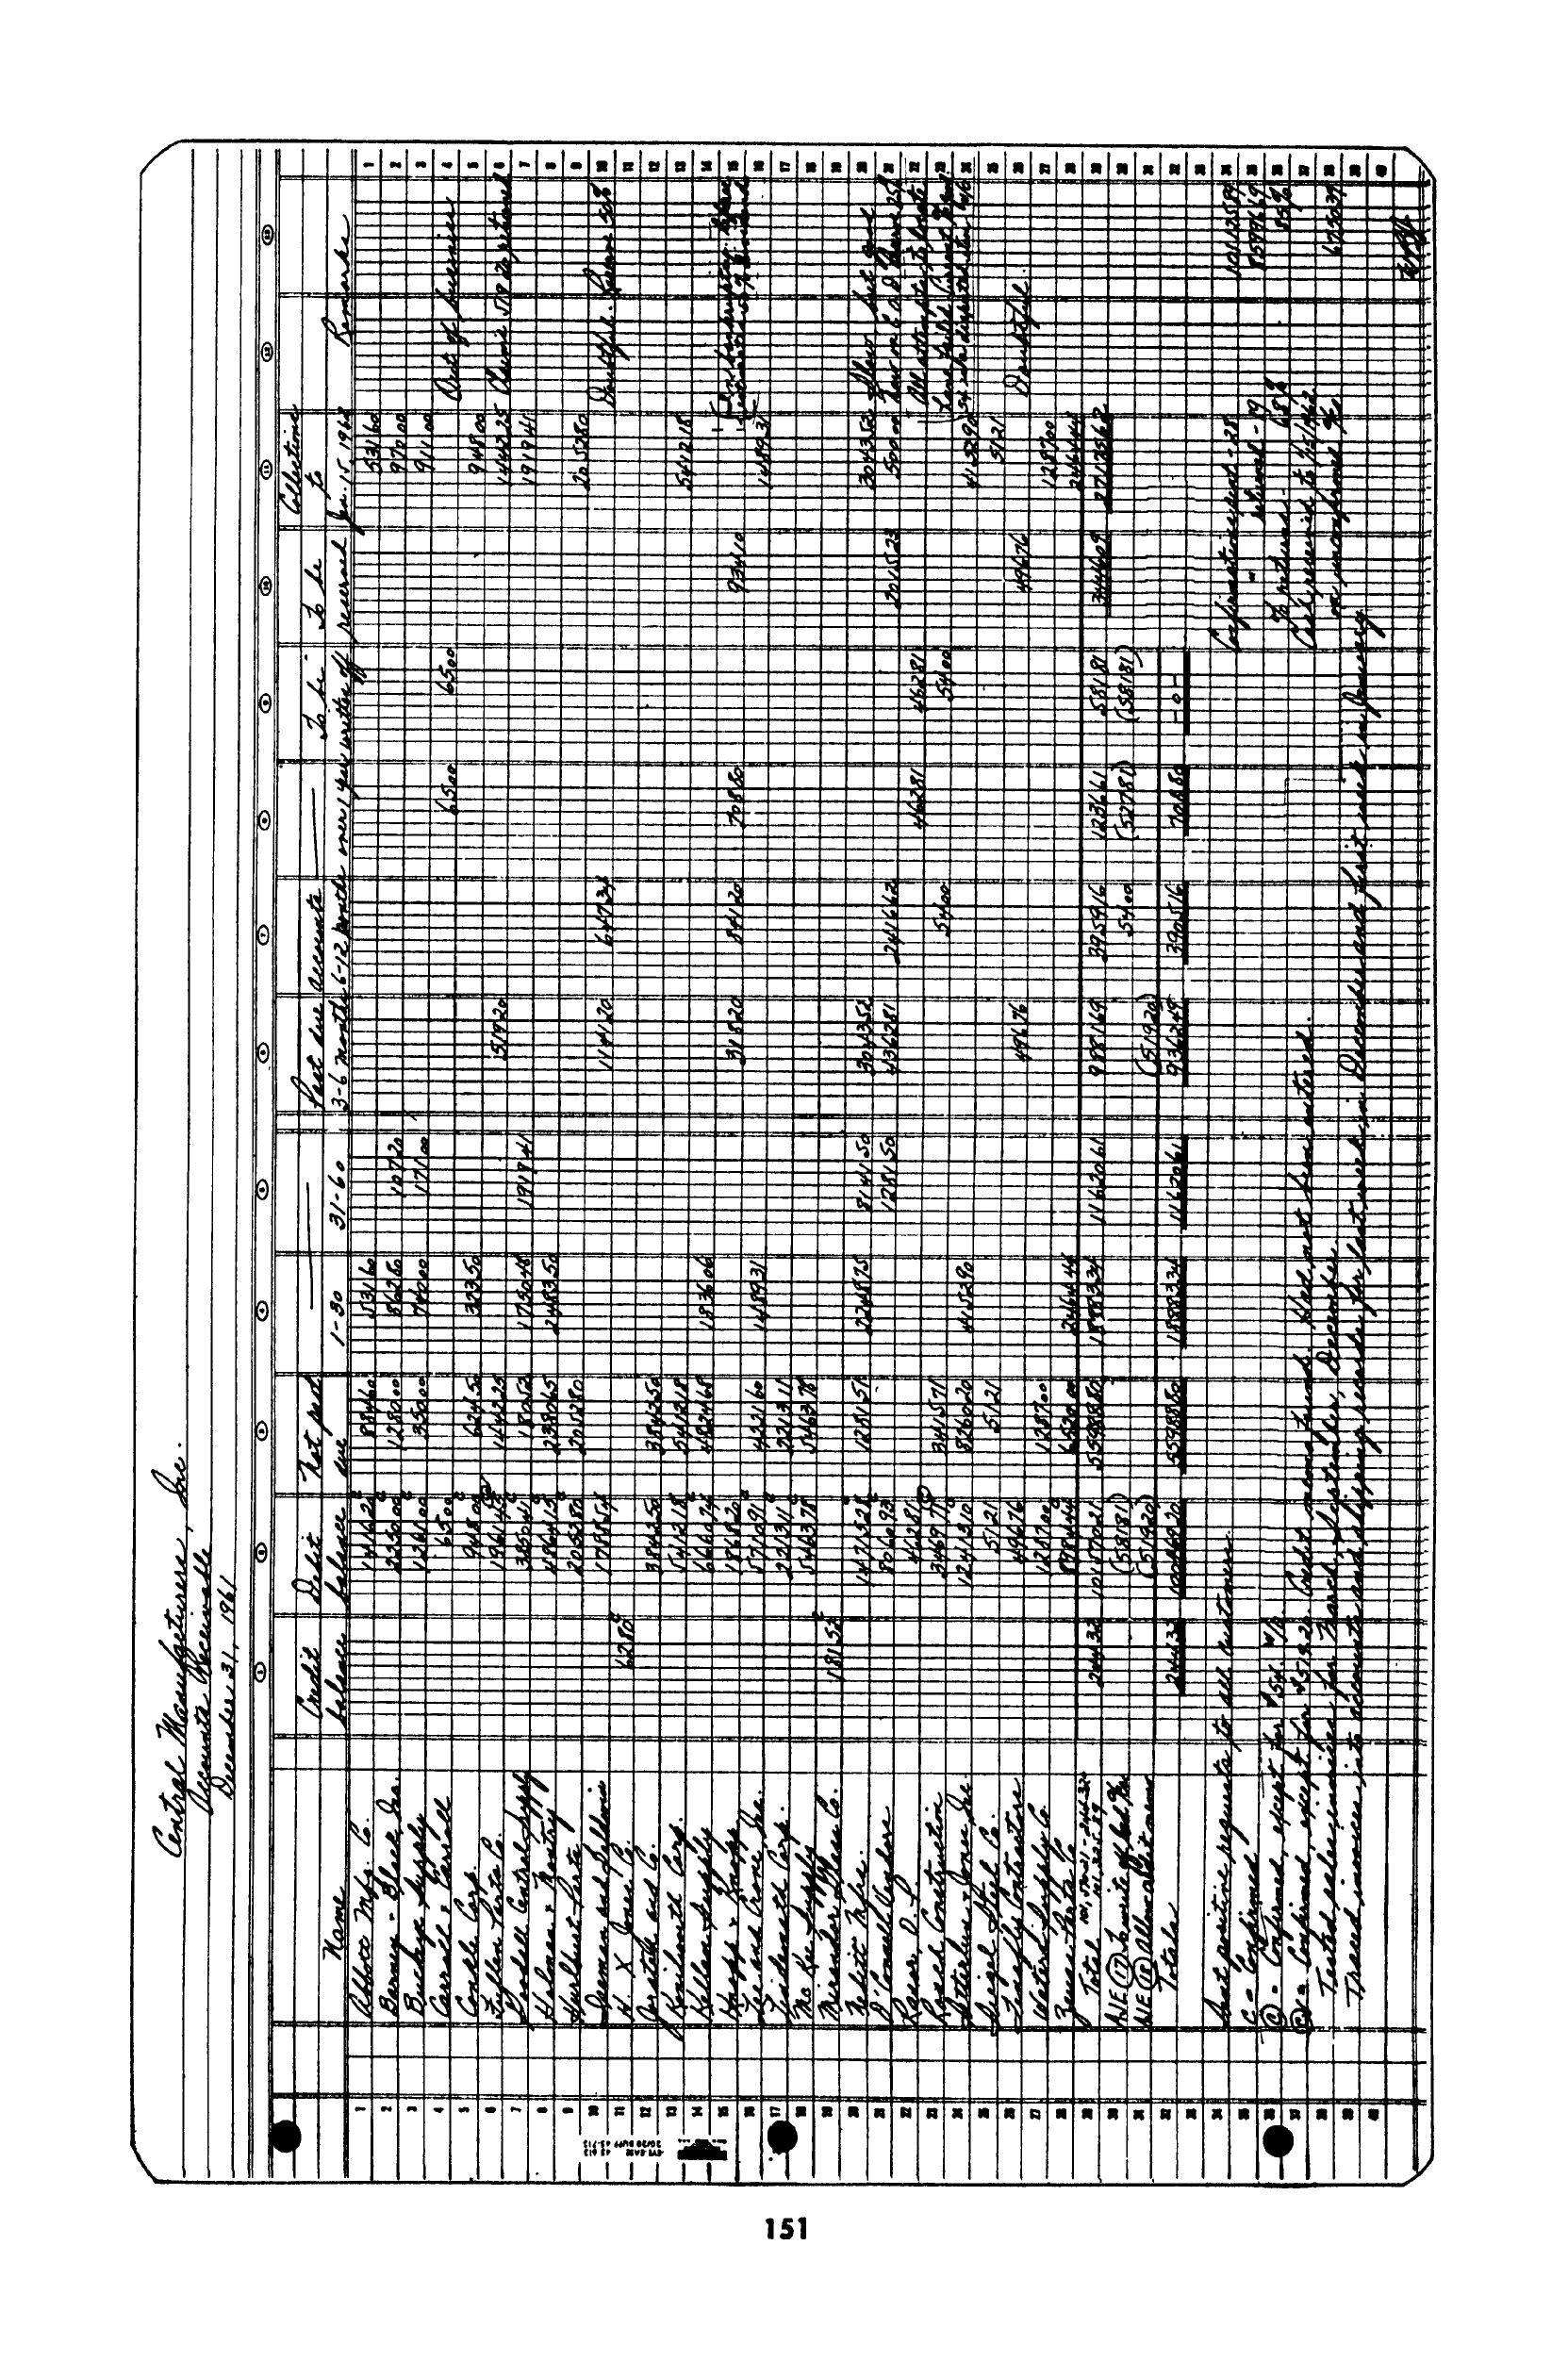 Central Manufacturers, Inc.
Accounts Receivable
December 31, 1961
Name Credit balance Debit balance Not past due 1-30 31-60 Past due accounts 3-6 months 6-12 months over 1 year To be written off To be reserved Collections to Jan. 15, 1962 Remarks
1 Abbott Mfg. Co. 1416 22 c 884 60 531 60 531 60
2 Barney - Black, Inc. 2250 00 c 1280 00 862 80 107 20 970 00
3 Buckeye Supply 1261 00 c 350 00 740 00 171 00 911 00
4 Carroll & Carroll 65 00 65 00 65 00 Out of business
5 Conkle Corp. 948 00 c 624 50 323 50 948 00
6 Fullen Parts Co. 1961 45 1442 25 519 20 1442 25 Claims 519.20 returned
7 Goodell Central Supply 3850 41 c 180 52 1750 48 1919 41 1919 41
8 Holman & Hentry 4864 15 c 2380 65 2483 50
9 Hurlburt Parts 2052 80 c 2052 80 2052 80
10 Inman and Baldwin 1788 54 1141 20 647 34 Doubtful - Reserve 50%
11 H. X. Jones Co. 62 80 c
12 Joratable and Co. 3842 50 3842 50
13 Knilsmith Corp. 5412 18 c 5412 18 5412 18
14 Kellam Supply 6660 74 c 4824 68 1836 06
15 Knapp & Knapp 1868 20 318 20 841 20 708 80 934 10
16 Lee and Crone, Inc. 5710 91 c 4221 60 1489 31 1489 31
17 Lindsmith Corp. 2213 11 c 2213 11
18 McKee Supply 5463 78 c 5463 78
19 Miranda Glass Co. 181 52 c
20 Nesbitt Mfrs. 14715 28 c 1281 51 2248 75 8141 50 3043 52 3043 52 Slow but good
21 O'Connell Leyders 8060 93 c 1281 50 4362 81 2416 62 2015 23 500 00 Now on C.O.D. Reserve 25%
22 Rasor, O. L. 462 81 462 81 462 81 All attempts to locate
23 Roach Construction 3469 71 3415 71 54 00 54 00
24 Satterlus & Jones Inc. 12413 10 c 8260 20 4152 90 4152 90
25 Siegel Steel Co. 51 21 51 21 51 21
26 Tenafly Contractors 496 76 496 76 496 76 Doubtful
27 Waters Supply Co. 1287 00 1287 00 1287 00
28 Zenna Parts Co. 8984 44 c 6520 00 2464 44 2464 44
29 Total 101,570.21 - 244.32 244 32 101570 21 55988 80 18883 34 11620 61 9881 69 3959 16 1236 61 581 81 3446 09 27135 62
30 AJE 17 To write off bad accts (581 81) 54 00 (527 81) (581 81)
31 AJE 18 Allow credit memo (519 20) (519 20)
32 Totals 244 32 100469 20 55988 80 18883 34 11620 61 9362 49 3905 16 708 80 -0-
Sent positive requests to all customers.
C = Confirmed
C = Confirmed, except for $54. w/o
C = Confirmed, except for $519.20. Credit memo returned. Had not been entered.
Tested sales invoices for March, September, December.
Traced invoices into accounts and shipping records for last week in December and first week in January
Confirmations sent - 28 101135 89
" returned - 19 85996 69
% returns 68% 85%
Cash received to 1/15/1962
on unconfirmed %s 6750 39
151